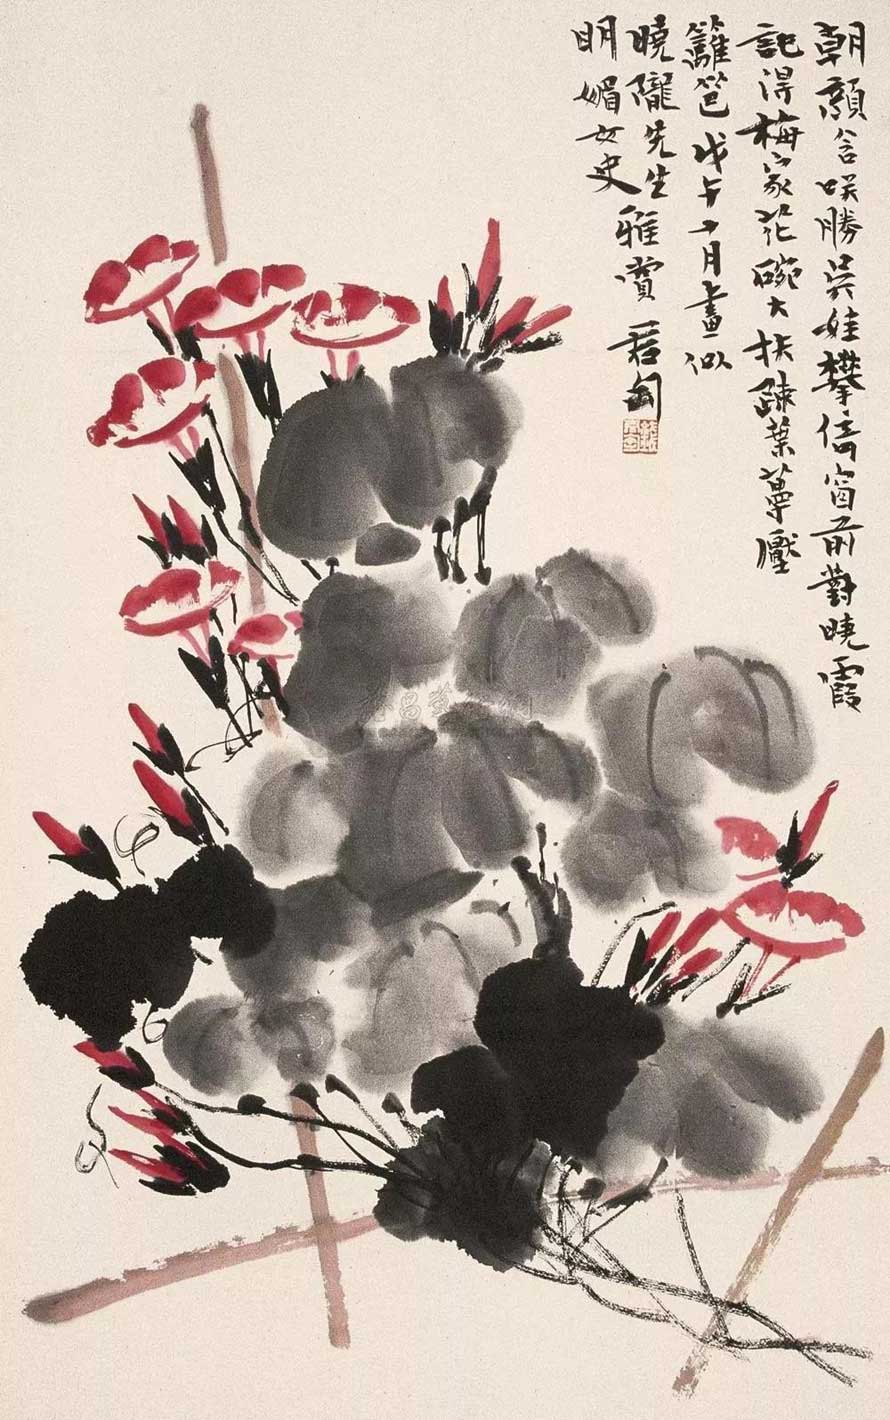 朝顏含笑勝吳娃攀倚窗前對曉霞
記得梅家花碗大扶疎葉蔓壓
籬笆戊午十月畫似
曉隴先生雅賞君匋
明媚女史